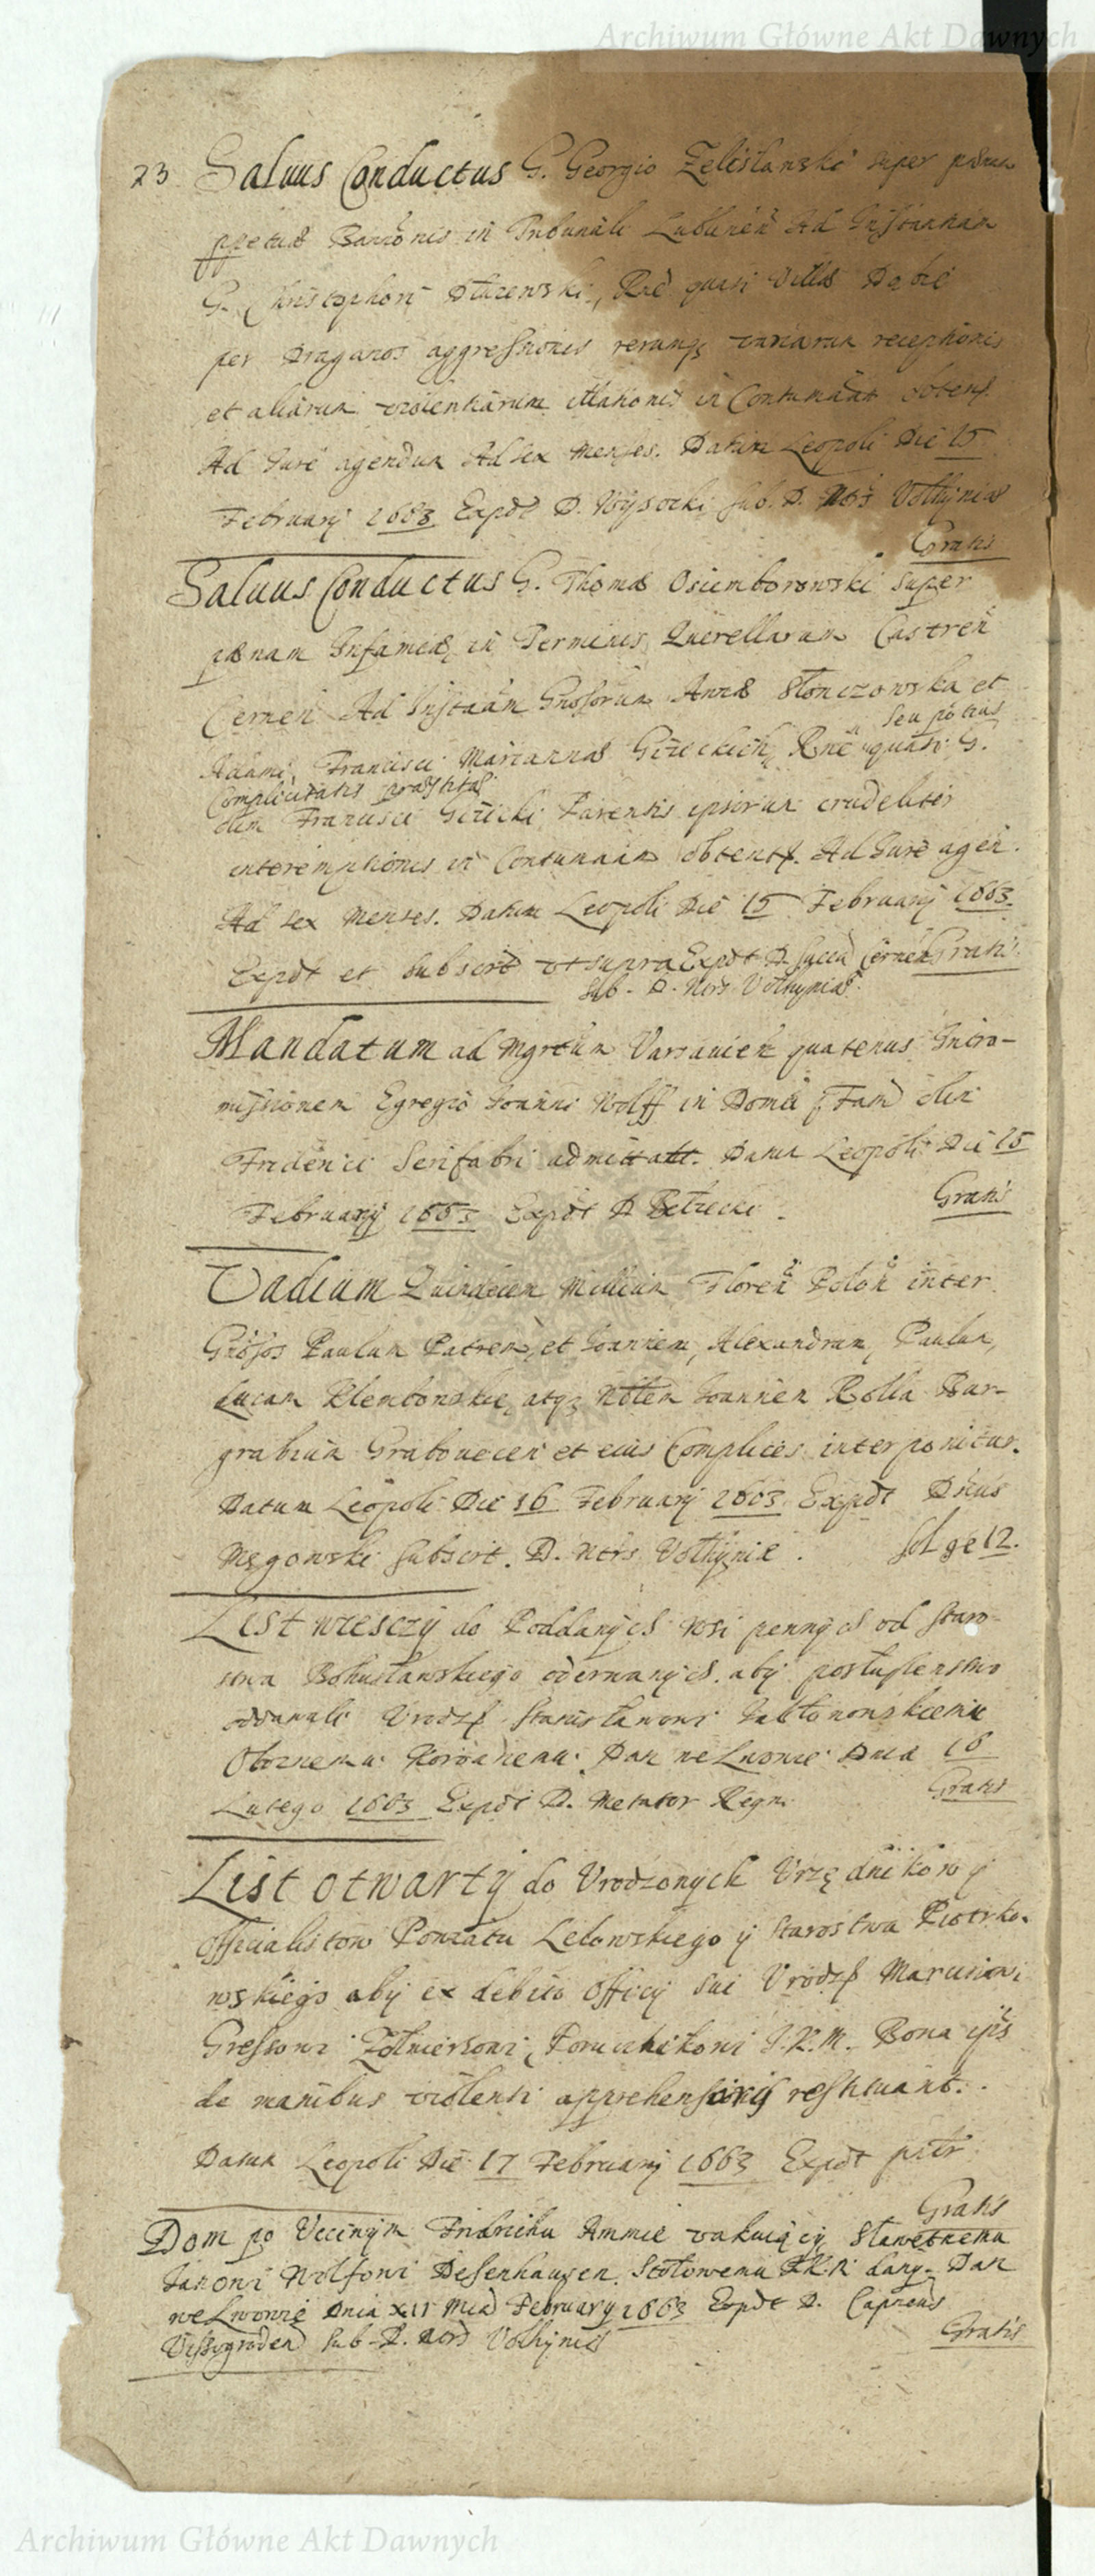 Archiwum Główne Akt Dawnych
23 Saluus Conductus G. Georgio Zelisławski super pænas
ppetuæ Bannionis in Tribunali Lublinen Ad Instantiam
G. Christophori Dłuzewski, Rne quasi Villæ
per Draganos aggressionis rerumq variarum receptionis
et aliarum violentiarum illationis in Contumaam obtens.
Ad Jure agendum Ad sex Menses. Datum Leopoli Die 15
February 1663 Expdt D. Wysocki sub. D. Nrs Volhyniæ
Gratis
Saluus Conductus G. Thomæ Osiemborowski super
pænam Infamiæ in Terminis Querellarum Castren
Cernen Ad Instaam Gnosorum Annæ Słonczowska et
seu potius
Adami, Francisci Mariannæ Gizickich, Rne quasi G.
Complicitatis præstitæ
olim Francisci Gizicki Parentis ipsorum crudeliter
interemptionis in Contumaam obtent. Ad Jure agen.
Ad sex Menses. Datum Leopoli Die 15 February 1663.
Expdt et subscrd ut supra Expdt D. Succa Cernen Gratis
sub. D. Nrs Volhyniæ.
Mandatum ad Mgrtum Varsauien quatenus Intro-
missionem Egregio Joanni Wolff in Domu Fam olim
Friderici Serifabri admittatt. Datum Leopoli Die 15
February 1663 Expdt D
Gratis
Vadium Quindecim Millium Floren Polon inter
Gnosos Paulum Patrem, et Joannem, Alexandrum, Paulum,
Lucam Klembowskie, atq Noblem Joannem Rolla Bur-
grabium Grabouecen et eius Complices interponitur.
Datum Leopoli Die 16 February 1663 Expdt Dnus
Męgowski subscrt. D. Nrs Volhyniæ. sol ge 12.
List wiesczy do Poddanych wsi pewnych od staro-
stwa Bohusławskiego oderwanych. aby posłuszenstwo
oddawali Vrodz Stanisławowi Jabłonowskiemu
Oboznemu Koronnemu. Dan we Lwowie Dnia 16
Lutego 1663 Expdt D. Metator Regni
Gratis
List otwarty do Vrodzonych Vrzędnikow y
Officialistow Powiatu Lelowskiego y Starostwa Piotrko-
wskiego aby ex debito Officy sui Vrodz Marcinowi
Gressowi Zołnierzowi, Porucznikowi J.K.M. Bona ips
de manibus violenti apprehensoris restituant.
Datum Leopoli Die 17 February 1663 Expdt
Gratis
Dom po Vccinym Fridrichu Ammie vakuiący Sławetnemu
Janowi Wolfowi Desenhauzen Stołowemu J.K.M dany. Dan
we Lwowie Dnia XII Mca February 1663 Expdt D. Capneus
Vissogroden sub D. Nrs Volhyniæ
Gratis
Archiwum Główne Akt Dawnych